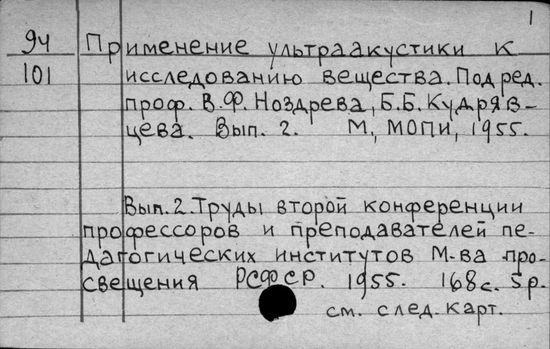 1
94 Применение ультраакустики к
101 исследованию вещества. Под ред.
проф. В.Ф. Ноздрева, Б.Б. Кудряв-
цева. Вып. 2. М, МОПИ, 1955.
Вып. 2. Труды второй конференции
профессоров и преподавателей пе-
дагогических институтов М-ва про-
свещения РСФСР. 1955. 168с. 5р.
см. след. карт.